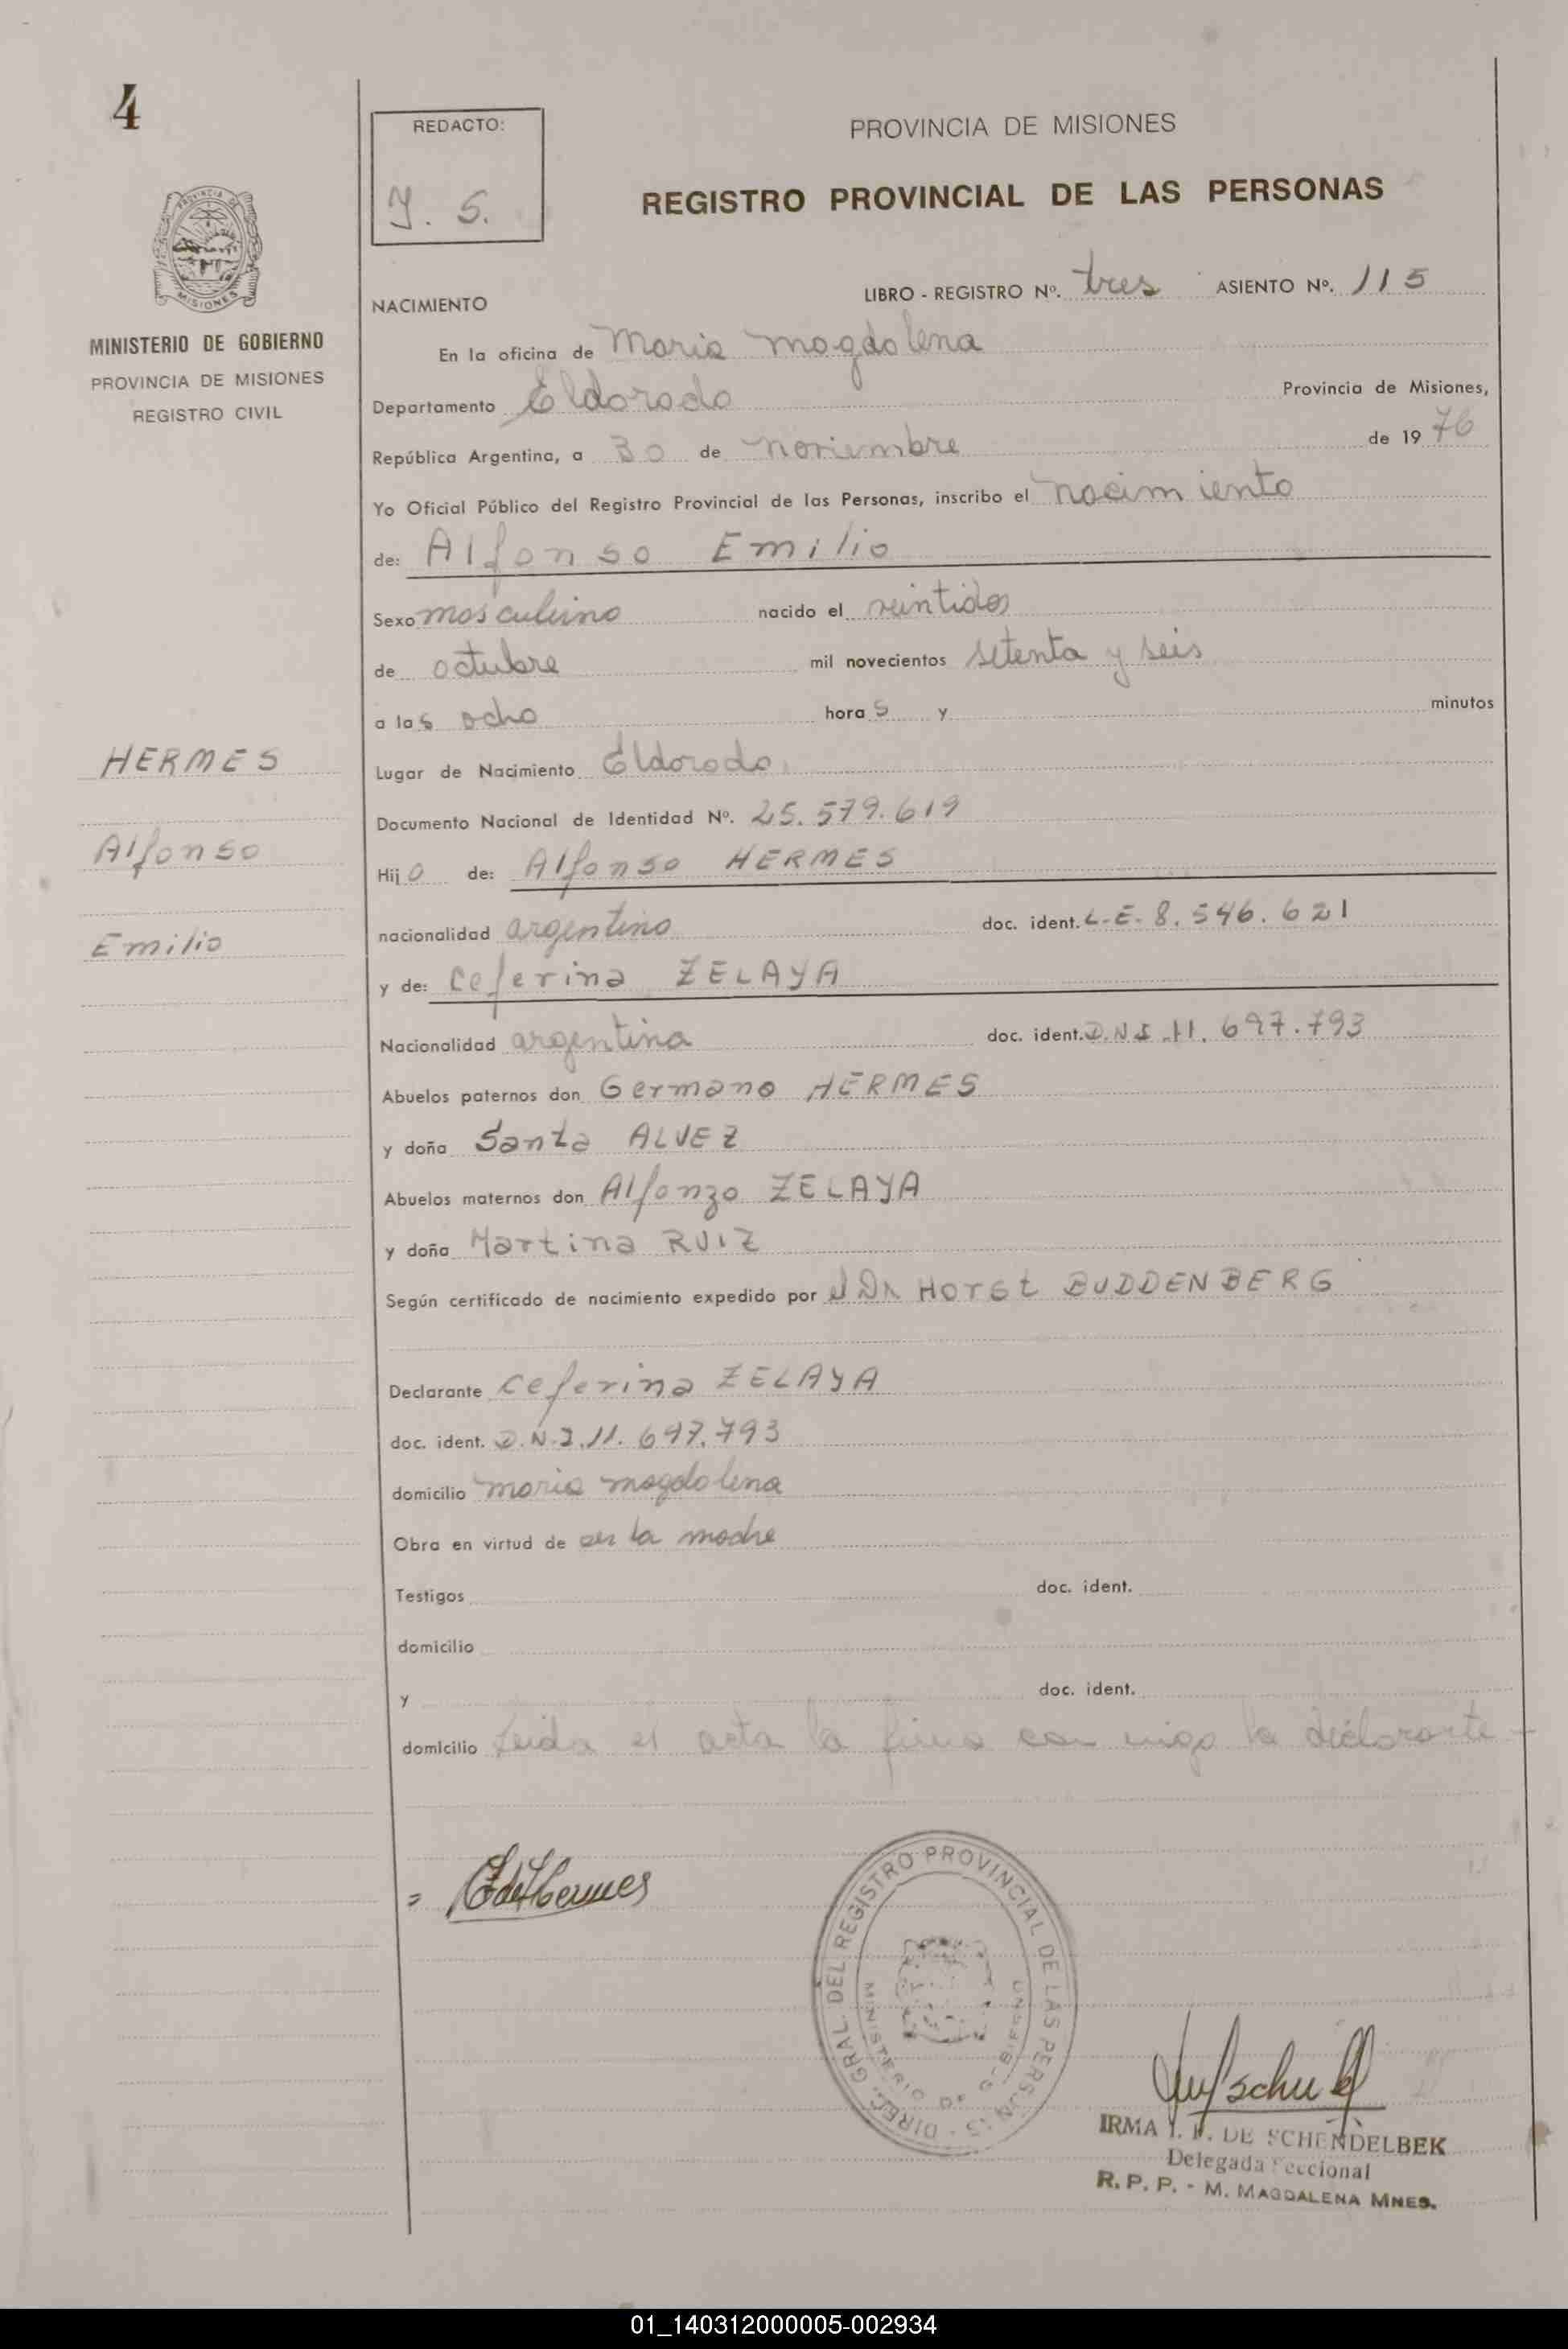 4
REDACTO:
Y. S.
PROVINCIA DE MISIONES
REGISTRO PROVINCIAL DE LAS PERSONAS
MISIONES
MINISTERIO DE GOBIERNO
PROVINCIA DE MISIONES
REGISTRO CIVIL
NACIMIENTO
LIBRO - REGISTRO Nº. tres ASIENTO Nº. 115
En la oficina de Maria Magdalena
Departamento Eldorado Provincia de Misiones,
República Argentina, a 30 de noviembre de 1976
Yo Oficial Público del Registro Provincial de las Personas, inscribo el nacimiento
de: Alfonso Emilio
Sexo masculino nacido el veintidos
de octubre mil novecientos setenta y seis
a las ocho horas y minutos
HERMES
Alfonso
Emilio
Lugar de Nacimiento Eldorado
Documento Nacional de Identidad Nº. 25.579.619
Hijo de: Alfonso HERMES
nacionalidad argentino doc. ident. L.E. 8.546.621
y de: Ceferina ZELAYA
Nacionalidad argentina doc. ident. D.N.I. 11.697.793
Abuelos paternos don Germano HERMES
y doña Santa ALVEZ
Abuelos maternos don Alfonzo ZELAYA
y doña Martina RUIZ
Según certificado de nacimiento expedido por el Dr HORST BUDDENBERG
Declarante Ceferina ZELAYA
doc. ident. D.N.I. 11.697.793
domicilio Maria Magdalena
Obra en virtud de ser la madre
Testigos doc. ident.
domicilio
y doc. ident.
domicilio Leida el acta la firma con migo la declarante
DIREC. GRAL. DEL REGISTRO PROVINCIAL DE LAS PERSONAS
MINISTERIO DE GOBIERNO
IRMA DE SCHENDELBEK
Delegada Seccional
R. P. P. - M. MAGDALENA MNES.
01_140312000005-002934